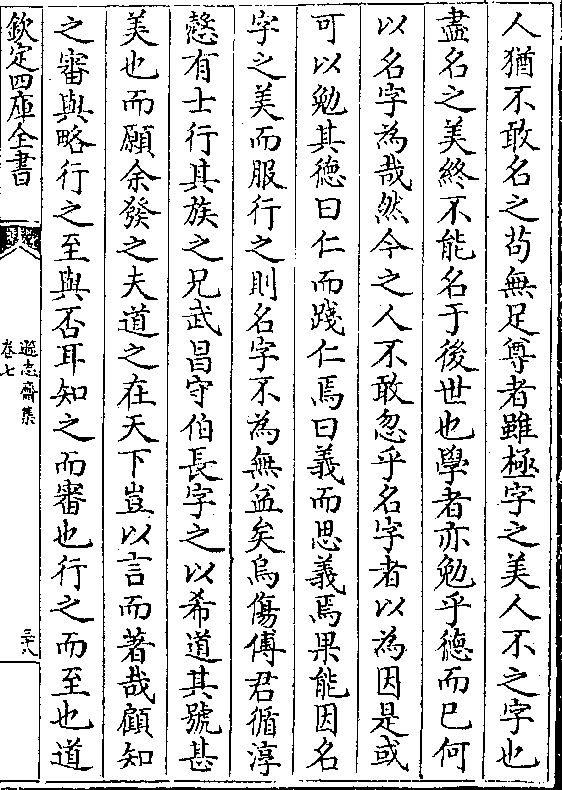 人猶不敢名之苟無足尊者雖極字之美人不之字也
盡名之美終不能名于後世也學者亦勉乎德而已何
以名字為哉然今之人不敢忽乎名字者以為因是或
可以勉其德曰仁而踐仁焉曰義而思義焉果能因名
字之美而服行之則名字不為無益矣烏傷傅君循淳
慤有士行其族之兄武昌守伯長字之以希道其號甚
美也而願余發之夫道之在天下豈以言而著哉顧知
之審與略行之至與否耳知之而審也行之而至也道
欽定四庫全書
遜志齋集
卷七
三十八